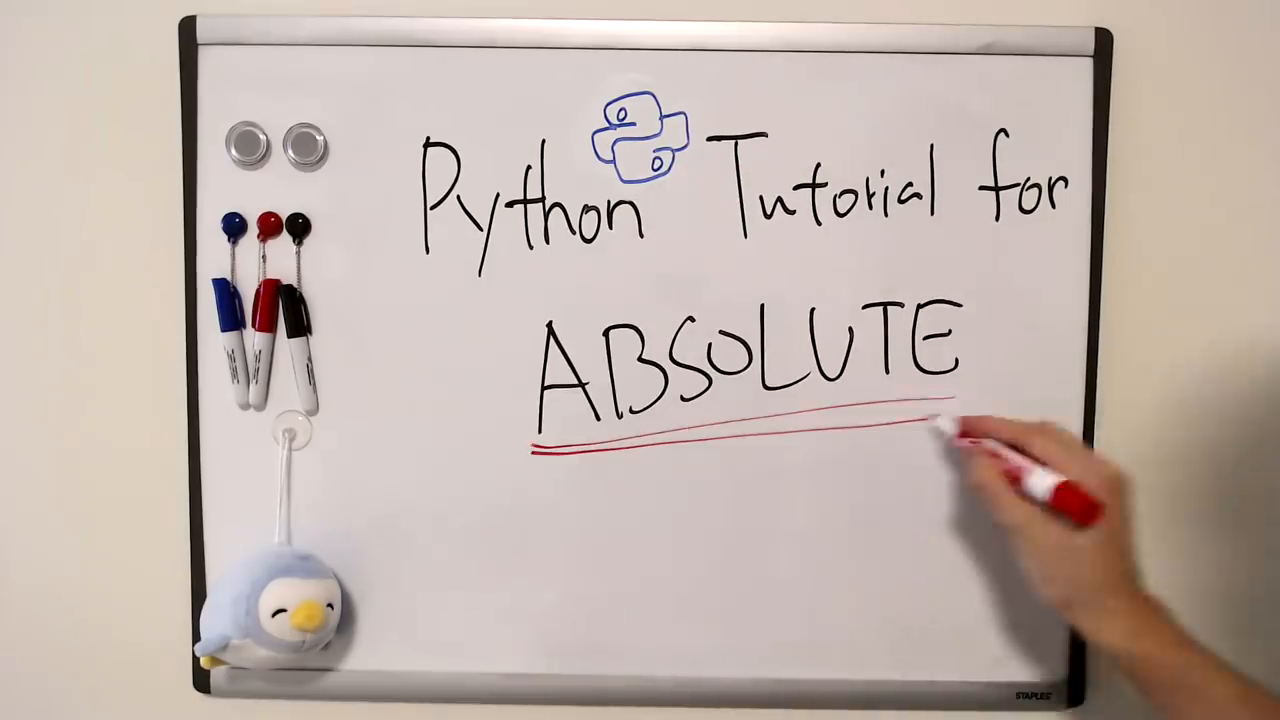 Python Tutorial for
ABSOLUTE
STAPLES